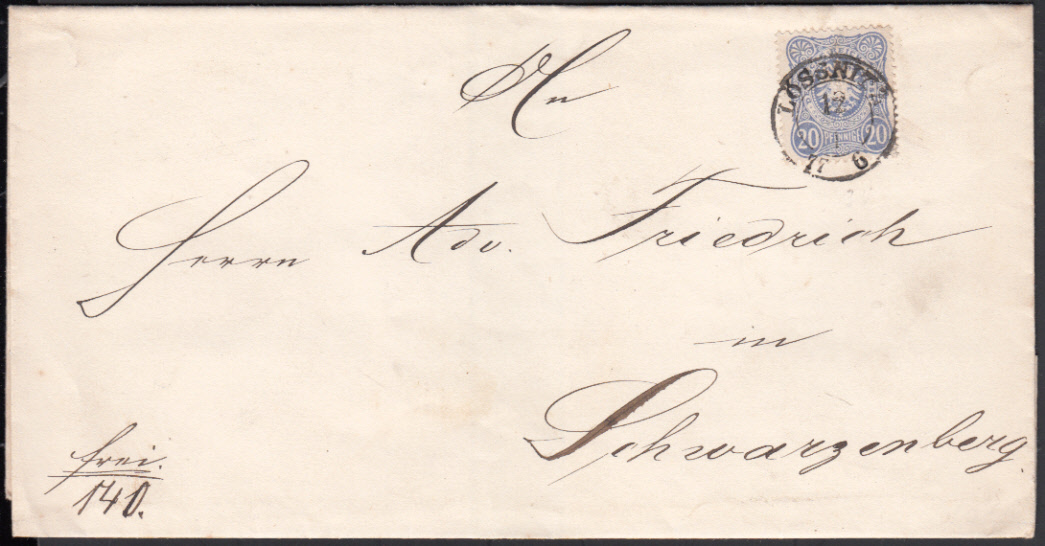 An
LÖSSNITZ
12
1
77 6
20 PFENNIGE 20
Herrn Adv. Friedrich
in
Schwarzenberg.
frei.
140.